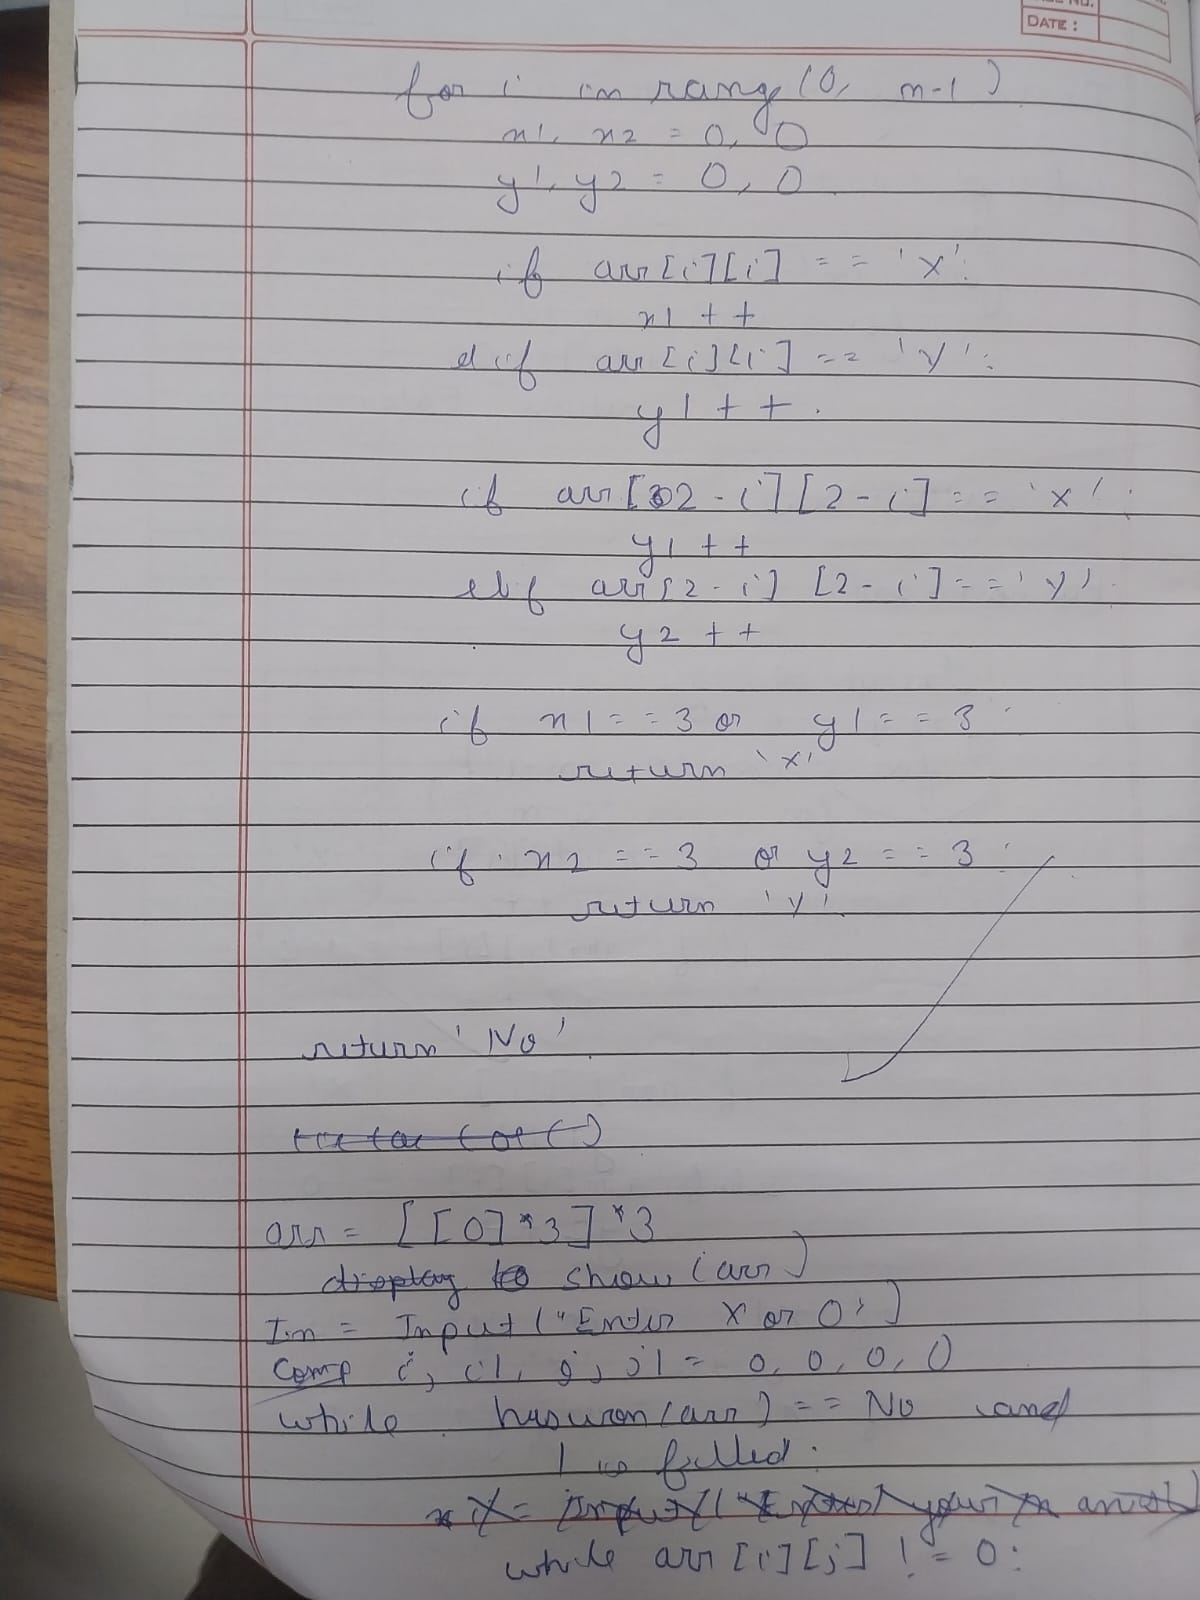 DATE :
for i in rang (0, n-1)
x1, x2 = 0, 0
y1, y2 = 0, 0
if arr [i][i] == 'X':
x1 ++
elif arr [i][i] == 'Y':
y1 ++.
if arr [2-i][2-i] == 'X':
y1 ++
elif arr [2-i] [2-i] == 'Y'
y2 ++
if x1 == 3 or y1 == 3:
return 'X'
if x2 == 3 or y2 == 3:
return 'Y'.
return 'No'.
tic tac toe ()
arr = [[0]*3]*3
display to show (arr)
In = Input ("Enter X or O')
Comp i, i1, j, j1 = 0, 0, 0, 0
while haswon (arr) == No and
! is filled:
x = Input ("Enter your
while arr [i][j] != 0: